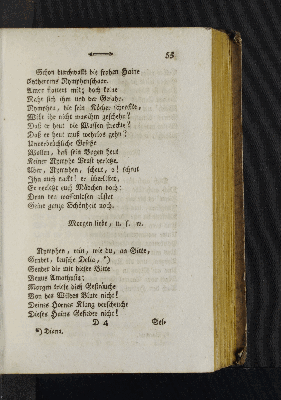 55
Schon durchwallt die frohen Haine
Cytherens Nymphenschaar.
Amor flattert mit; doch keine
Naht sich ihm und der Gefahr.
Nymphen, die sein Köcher schrecket,
Wißt ihr nicht was ihm geschehe?
Daß er heut die Waffen strecket?
Daß er heut muß wehrlos gehn?
Unverbrüchliche Gesetze
Wollen, daß sein Bogen heut
Keiner Nymphe Brust verletze.
Aber, Nymphen, scheut, o! scheut
Ihn auch nackt! er überlistet,
Er verletzt euch Mädchen noch:
Denn den waffenlosen rüstet
Seine ganze Schönheit noch.
Morgen liebe, u. s. w.
Nymphen, rein, wie du, an Sitte,
Sendet, keusche Delia, *)
Sendet die mit dieser Bitte
Venus Amathusia:
Morgen triefe dies Gesträuche
Von des Wildes Blute nicht!
Deines Hornes Klang verscheuche
Dieses Hains Gefieder nicht!
D 4
Sel-
*) Diana.